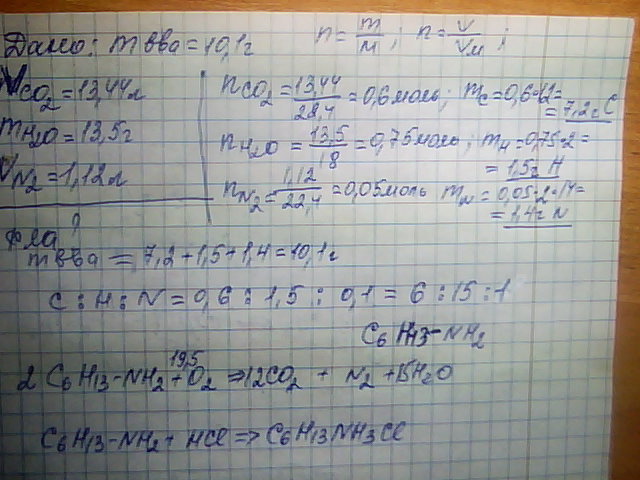 Дано: m вва = 10,1 г n = m/M; n = V/Vм;
VCO2 = 13,44 л nCO2 = 13,44/28,4 = 0,6 моль; mC = 0,6·12 = = 7,2 г C
mH2O = 13,5 г nH2O = 13,5/18 = 0,75 моль; mH = 0,75·2 = = 1,5 г H
VN2 = 1,12 л nN2 = 1,12/22,4 = 0,05 моль mN = 0,05·2·14 = = 1,4 г N
ф-ла ?
m вва = 7,2 + 1,5 + 1,4 = 10,1 г
C : H : N = 0,6 : 1,5 : 0,1 = 6 : 15 : 1
C6H13-NH2
2 C6H13-NH2 + 19,5 O2 => 12CO2 + N2 + 15H2O
C6H13-NH2 + HCl => C6H13NH3Cl